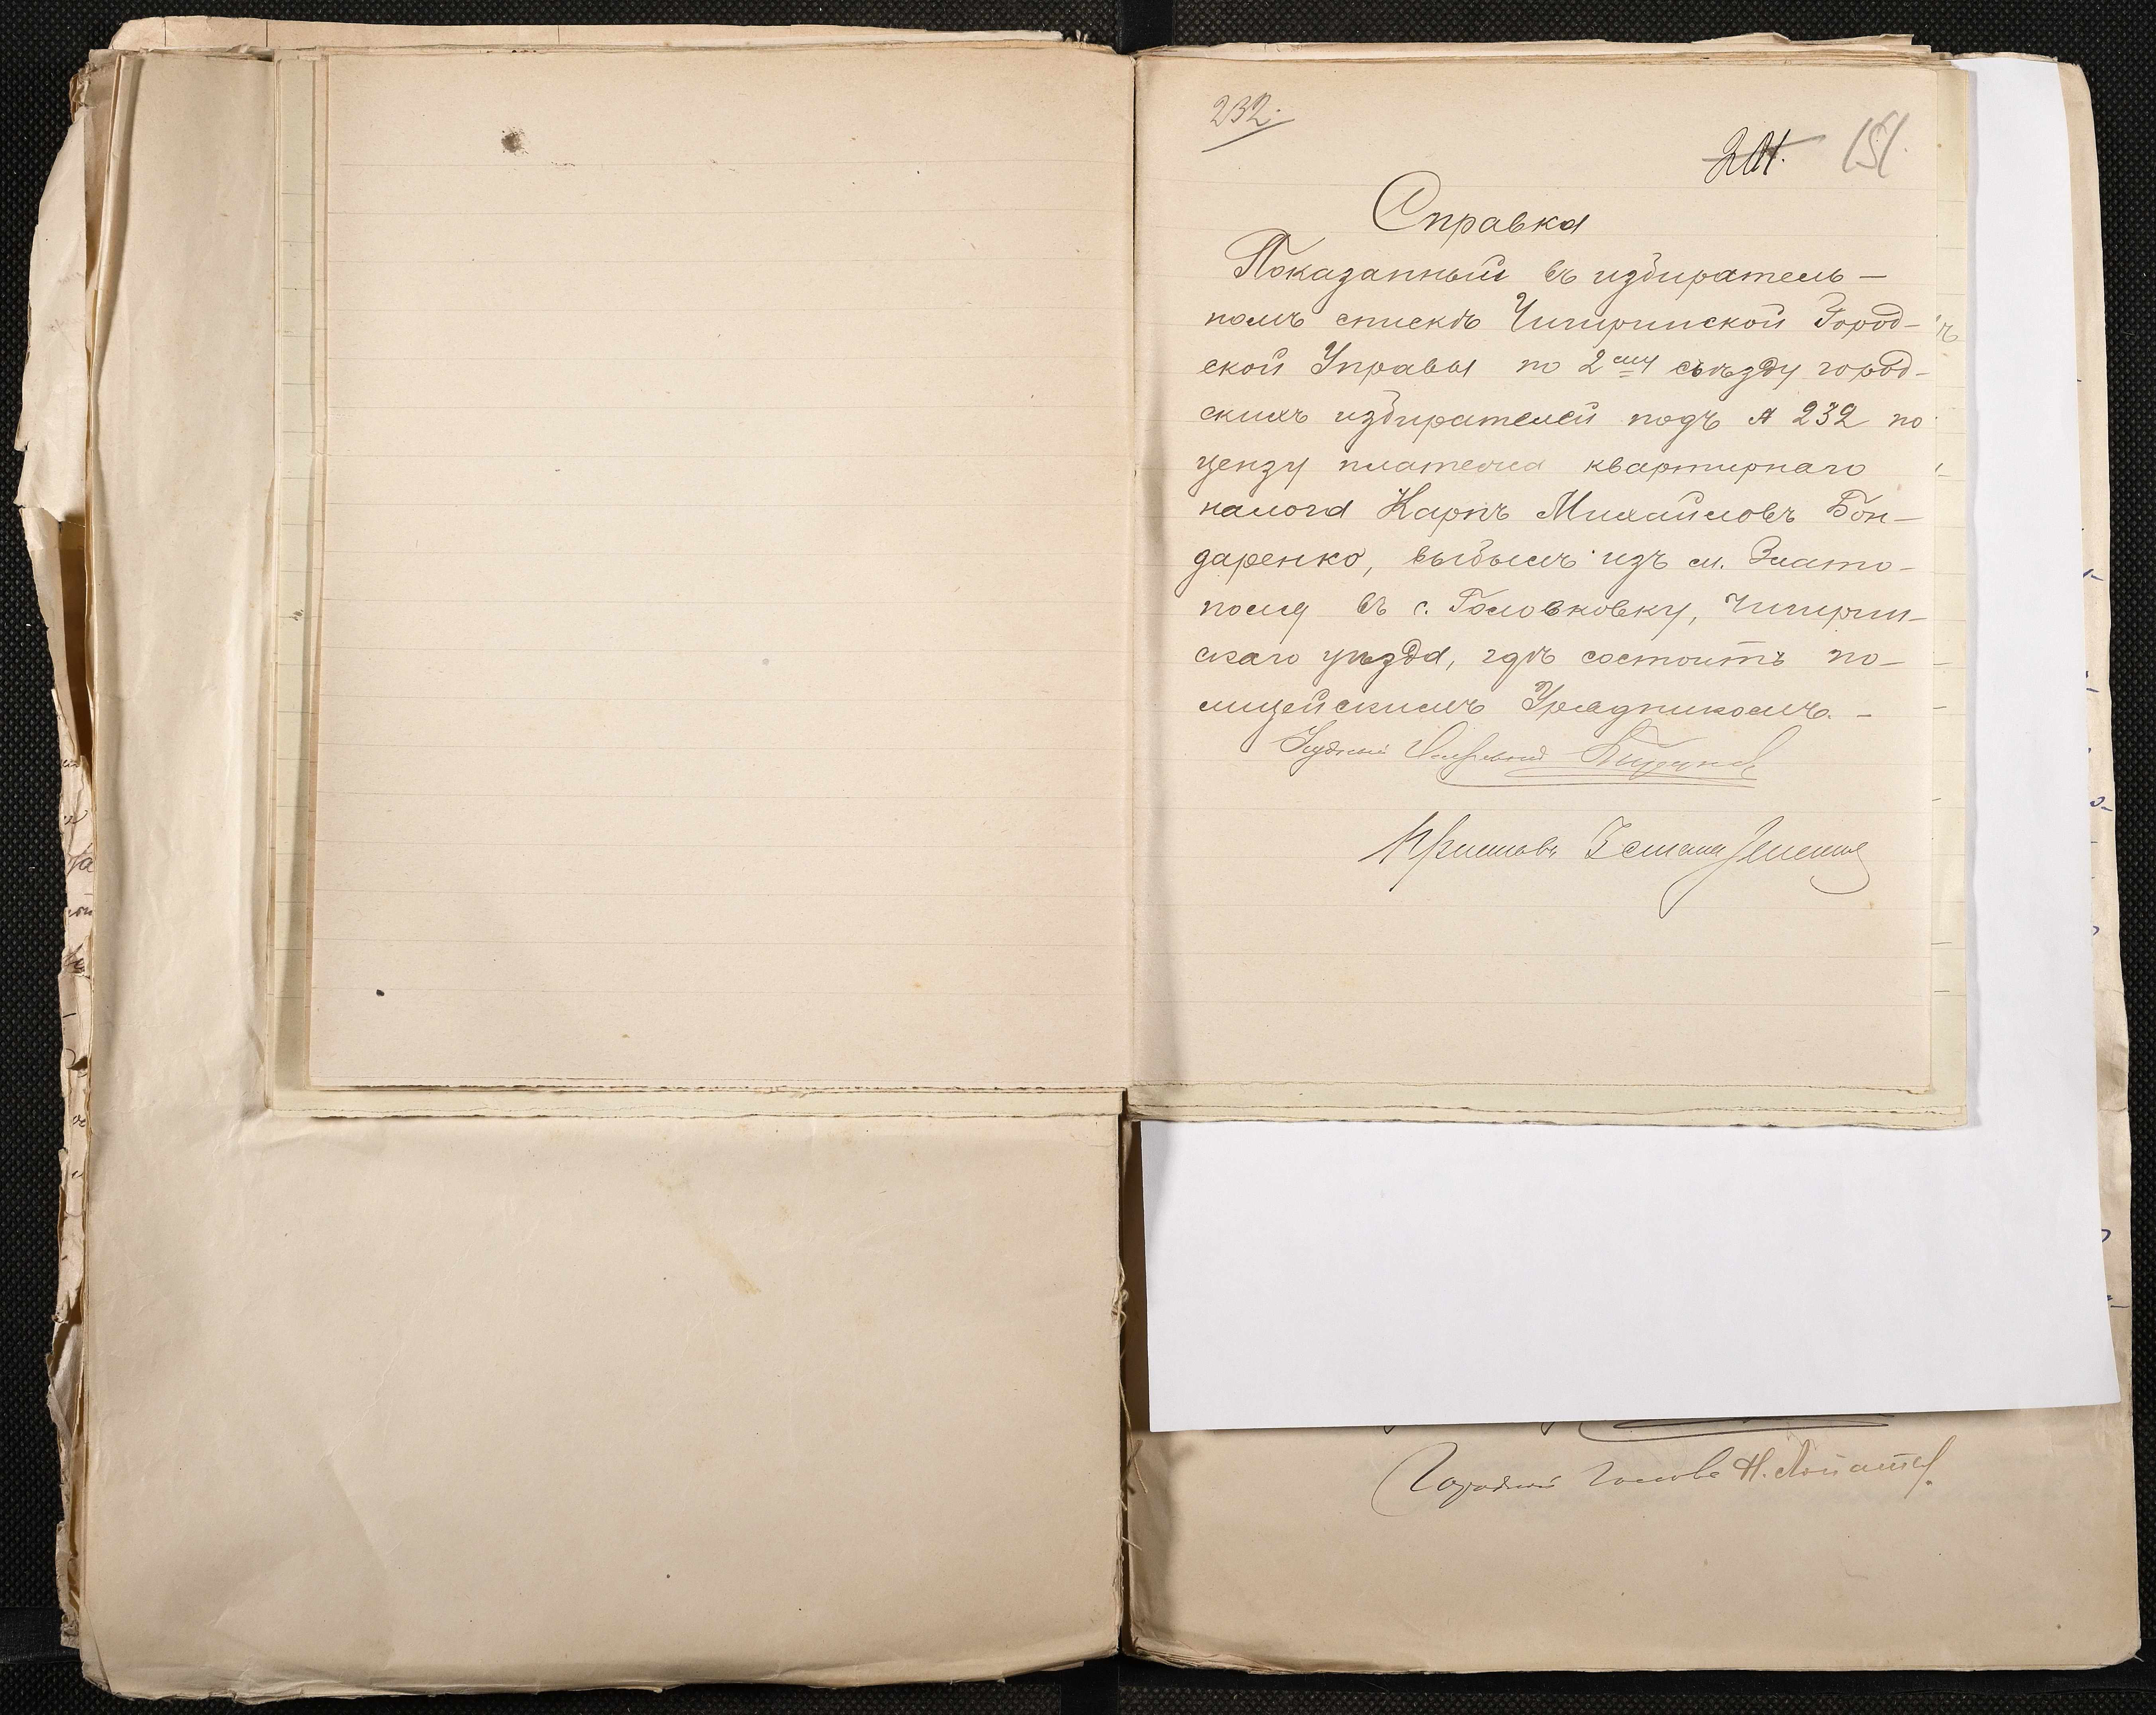 232.
201. 151.
Справка
Показанный въ избиратель-
номъ спискѣ Чигиринской Город-
ской Управы по 2ому съѣзду город-
скихъ избирателей подъ № 232 по
цензу платежа квартирнаго
налога Карпъ Михайловъ Бон-
даренко, выбылъ изъ м. Злато-
поля въ с. Головковку, Чигирин-
скаго уѣзда, гдѣ состоитъ по-
лицейскимъ Урядникомъ. -
Городской Голова Н.